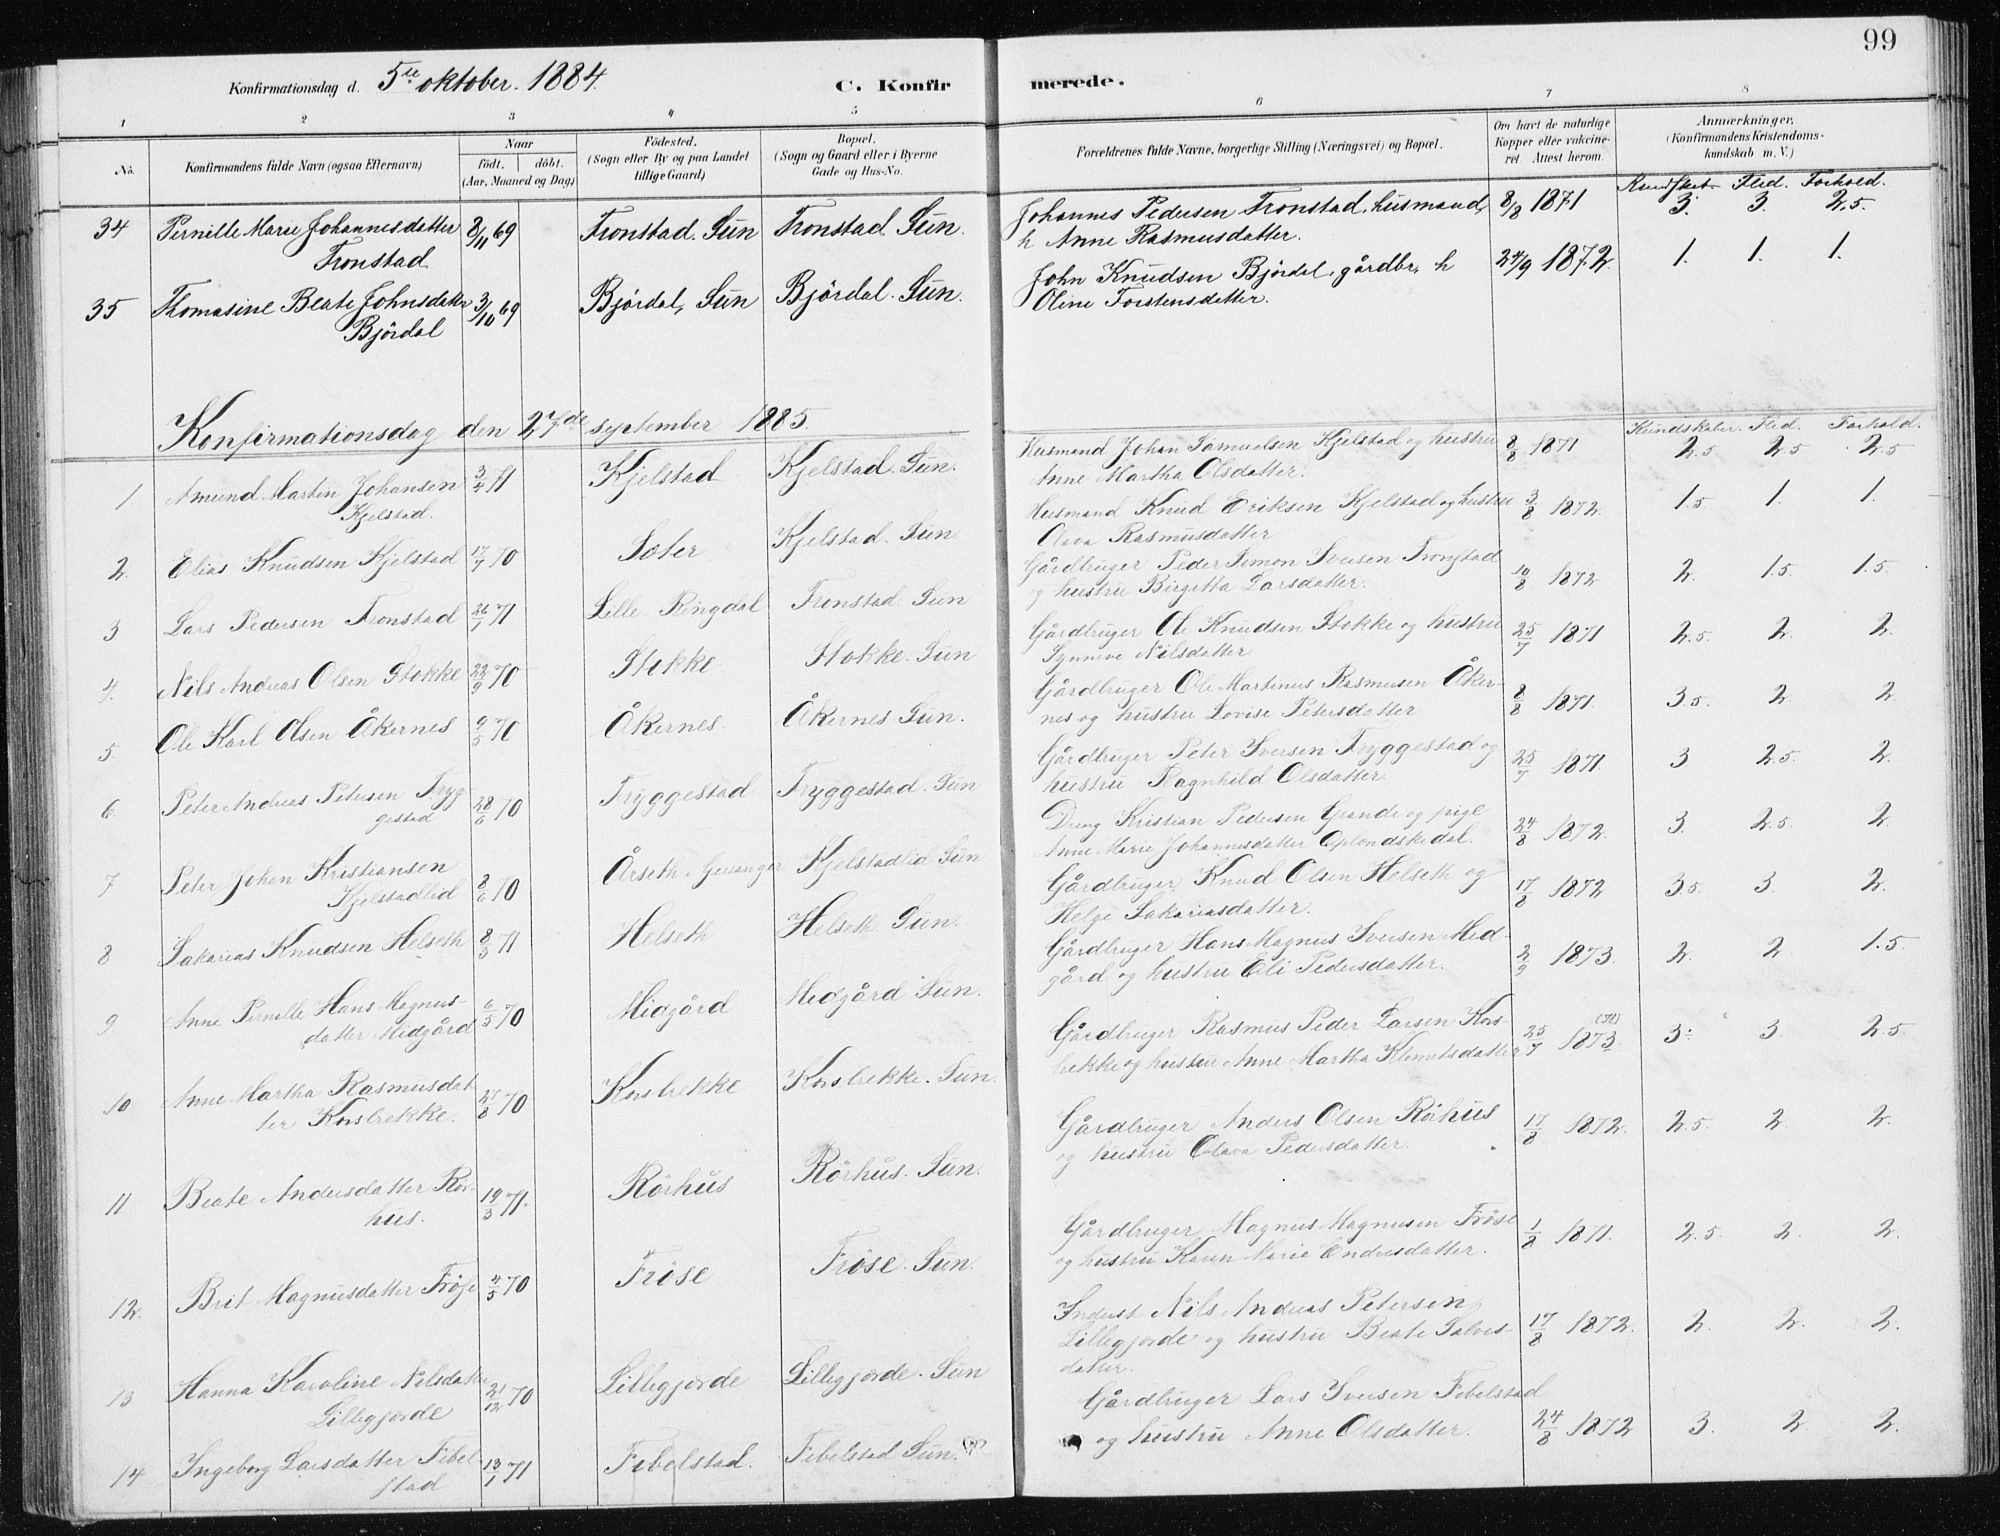 99
Konfirmationsdag d. 5te oktober. 1884. C. Konfirmerede.
1 2 3 4 5 6 7 8
No. Konfirmandens fulde Navn (ogsaa Efternavn) Naar født. døbt. (Aar, Maaned og Dag) Födested. (Sogn eller By og paa Landet tillige Gaard) Bopæl. (Sogn og Gaard eller i Byerne Gade og Hus-No. Forældrenes fulde Navne, borgerlige Stilling (Næringsvei) og Bopæl. Om havt de naturlige Kopper eller vakcineret. Attest herom. Anmærkninger. (Konfirmandens Kristendomskundskab m. V.)
Kundskab. Flid. Forhold.
34 Pernille Marie Johannesdatter 8/11 69 Tronstad. Sun Tronstad. Sun. Johannes Pedersen Tronstad, husmand, 8/8 1871 3. 3. 2,5.
Tronstad h Anne Rasmusdatter.
35 Thomasine Beate Johnsdatter 3/10 69 Bjørdal, Sun Bjørdal. Sun. John Knudsen Bjørdal, gårdbr, h 24/9 1872. 1. 1. 1.
Bjørdal Oline Torstensdetter.
Konfirmationsdag den 27de september 1885.
Kundskaber. Flid. Forhold.
1 Amund Martin Johansen 3/4 71 Kjelstad Kjelstad. Sun. Husmand Johan Samuelsen Kjelstad og hustru 8/8 1871 2.5 2.5 2.5
Kjelstad. Anne Martha Olsdatter.
2. Elias Knudsen Kjelstad 17/7 70 Sæter Kjelstad. Sun. Husmand Knud Eriksen Kjelstad og hustru 3/8 1872. 1.5 1. 1.
Olava Rasmusdatter
3 Lars Pedersen Tronstad 26/1 71 Lille-Ringdal Tronstad. Sun Gårdbruger Peder Simon Iversen Tronstad 10/8 1872 2. 1.5. 1.5.
og hustru Birgitta Larsdatter.
4. Nils Andreas Olsen Stokke 22/9 70 Stokke Stokke. Sun Gårdbruger Ole Knudsen Stokke og hustru 25/7 1871 2.5. 2. 2.
Synneve Nilsdatter.
5. Ole Karl Olsen Åkernes 9/5 70 Åkernes. Åkernes. Sun. Gårdbruger Ole Martinus Rasmusen Åker- 8/8 1871. 3.5. 2. 2.
nes og hustru Lovise Petersdatter
6. Peter Andreas Petersen Tryg 28/6 70 Tryggestad Tryggestad. Sun Gårdbruger Peter Iversen Tryggestad og 25/7 1871. 3 2.5. 2.
gestad hustru Ragnhild Olsdatter.
7 Peter Johan Kristiansen Årseth. Geiranger Kjelstadlid. Sun Dreng Kristian Pedersen Grande og pige 24/8 1872. 3. 2.5. 2.
Kjelstadlid 8/6 70 Anne Marie Johannesdatter Oplendskedal.
8 Sakarias Knudsen Helseth 8/3 71 Helseth Helseth. Sun. Gårdbruger Knud Olsen Helseth og 17/8 1872 3.5. 3. 2.
Helge Sakariasdatter.
9. Anne Pernille Hans Magnus- 6/5 70 Midgård Midgård Sun. Gårdbruger Hans Magnus Iversen Mid- 2/9 1873. 2. 2. 1.5.
datter Midgård gård og hustru Eli Pedersdatter.
10 Anne Martha Rasmusdat 27/8 70 Korsbrekke Korsbrekke. Sun. Gårdbruger Rasmus Peder Larsen Kors- 25/7 1873 3. 3. 2.5.
ter Korsbrekke. brekke og hustru Anne Martha Klemetsdatter
11 Beate Andersdatter Rør- 19/3 71. Rørhus Rørhus. Sun. Gårdbruger Anders Olsen Rørhus 17/8 1872. 2.5. 2. 2.
hus. og hustru Olava Pedersdatter.
12. Brit Magnusdatter Frøse 4/5 70 Frøse Frøse. Sun. Gårdbruger Magnus Magnusen Frøse 1/8 1871. 2.5. 2. 2.
og hustru Karen Marie Endresdatter.
13 Hanna Karoline Nilsdatter 21/12 70 Lillegjerde Lillegjerde. Sun Inderst Nils Andreas Petersen 17/8 1872. 2. 2. 2.
Lillegjerde Lillegjerde og hustru Beate Salves-
datter.
14 Ingeborg Larsdatter Fibel- 13/1 71 Fibelstad. Fibelstad Sun. Gårdbruger Lars Iversen Fibelstad 24/8 1872 3. 2. 2.
stad og hustru Anne Olsdatter.